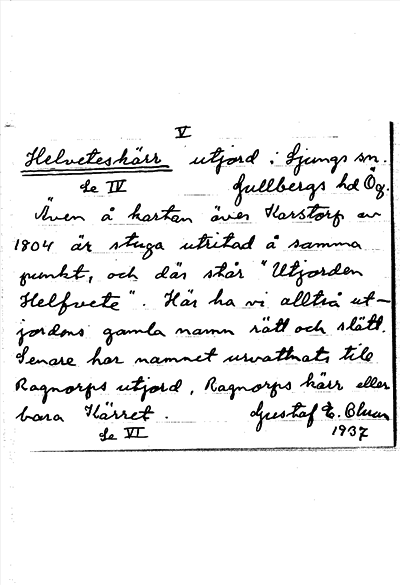 V
Helveteskärr utjord i Ljungs sn.
Se IV Gullbergs hd Ög.
Även å kartan över Karstorp av
1804 är stuga utritad å samma
punkt, och där står "Utjorden
Helfvete". Här ha vi alltså ut-
jordens gamla namn rätt och slätt.
Senare har namnet urvattnats till
Ragnorps utjord, Ragnorps kärr eller
bara Kärret.
Gustaf E.
Se VI 1937